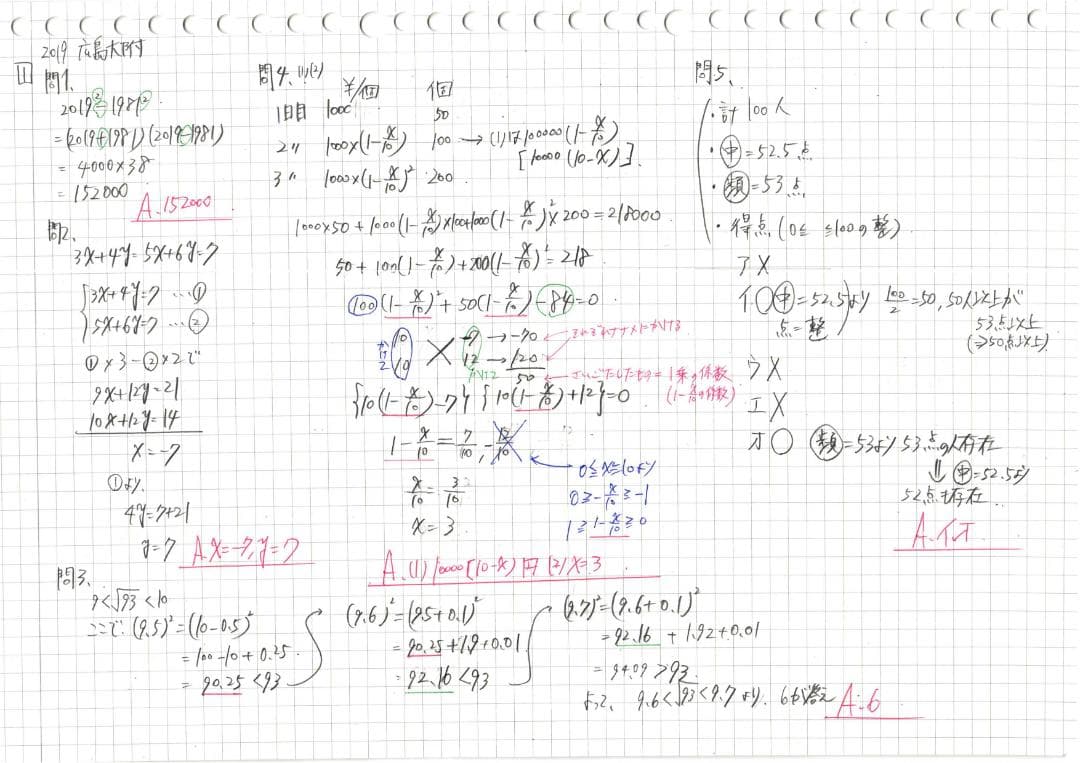 2019 広島大附
1
問1、
2019²-1981²
=(2019+1981)(2019-1981)
= 4000×38
= 152000
A.152000
問2、
3x+4y=5x+6y=7
3x+4y=7 …①
5x+6y=7 …②
①×3-②×2で
9x+12y=21
10x+12y=14
x=-7
①より、
4y=7+21
y=7
A.x=-7,y=7
問3、
9<√93<10
ここで、(9.5)²=(10-0.5)²
=100-10+0.25
= 90.25<93
(9.6)²=(9.5+0.1)²
=90.25+1.9+0.01
=92.16<93
(9.7)²=(9.6+0.1)²
=92.16+1.92+0.01
=94.09>93
よって、9.6<√93<9.7より、6が答え
A:6
問4、(1)(2)
¥/個 個
1日目 1000 50
2〃 1000×(1-x/10) 100 → (1)は100000(1-x/10)
[10000(10-x)]
3〃 1000×(1-x/10)² 200
1000×50+1000(1-x/10)×100+1000(1-x/10)²×200=218000
50+100(1-x/10)+200(1-x/10)²=218
100(1-x/10)²+50(1-x/10)-84=0
かけて
10 -7 → -70
10 12 → 120
50
かけて
それぞれナナメにかける
さいごたしたもの=1乗の係数
(1-x/10の係数)
{10(1-x/10)-7}{10(1-x/10)+12}=0
1-x/10=7/10,-12/10
0≤x≤10より
0≥-x/10≥-1
1≥1-x/10≥0
x/10=3/10
x=3
A.(1)10000(10-x)円 (2)x=3
問5、
・計100人
・中=52.5点
・頻=53点
・得点(0≤ ≤100の整)
ア×
イ○ 中=52.5より 100/2=50,50人以上が
点=整
53点以上
(≥50点以上)
ウ×
エ×
オ○ 頻=53より53点の人存在
⇓ 中=52.5より
52点も存在
A.イオ